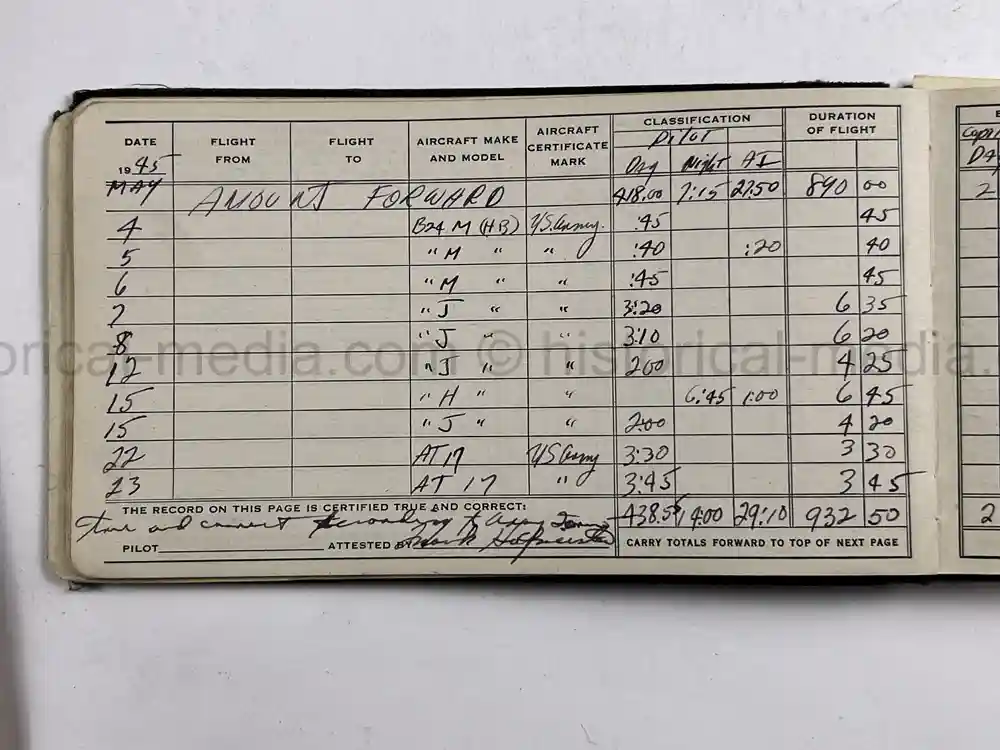 DATE FLIGHT FROM FLIGHT TO AIRCRAFT MAKE AND MODEL AIRCRAFT CERTIFICATE MARK CLASSIFICATION DURATION OF FLIGHT
1945 Pilot
Day Night AI
MAY AMOUNT FORWARD 418.00 7:15 27.50 890 00
4 B24 M (HB) U.S. Army. :45 45
5 " M " " :40 :20 40
6 " M " " :45 45
7 " J " " 3:20 6 35
8 " J " " 3:10 6 20
12 " J " " 200 4 25
15 " H " " 6:45 1:00 6 45
15 " J " " 2:00 4 20
22 AT 17 US Army 3:30 3 30
23 AT 17 " 3:45 3 45
THE RECORD ON THIS PAGE IS CERTIFIED TRUE AND CORRECT: 438.55 14:00 29:10 932 50
true and correct according to
PILOT ATTESTED BY CARRY TOTALS FORWARD TO TOP OF NEXT PAGE
Day
2
2
historical-media.com © historical-media.